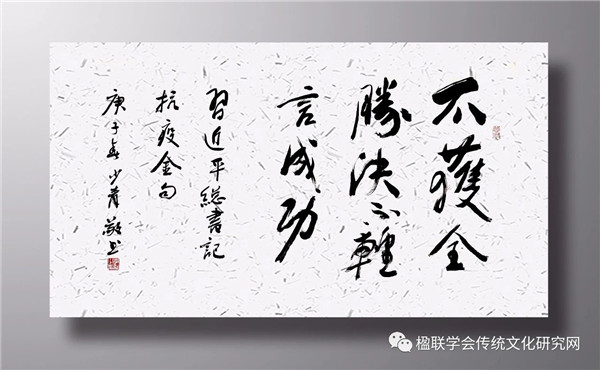 不獲全
勝決不輕
言成功
習近平總書記
抗疫金句
庚子春少敬书
楹联学会传统文化研究网